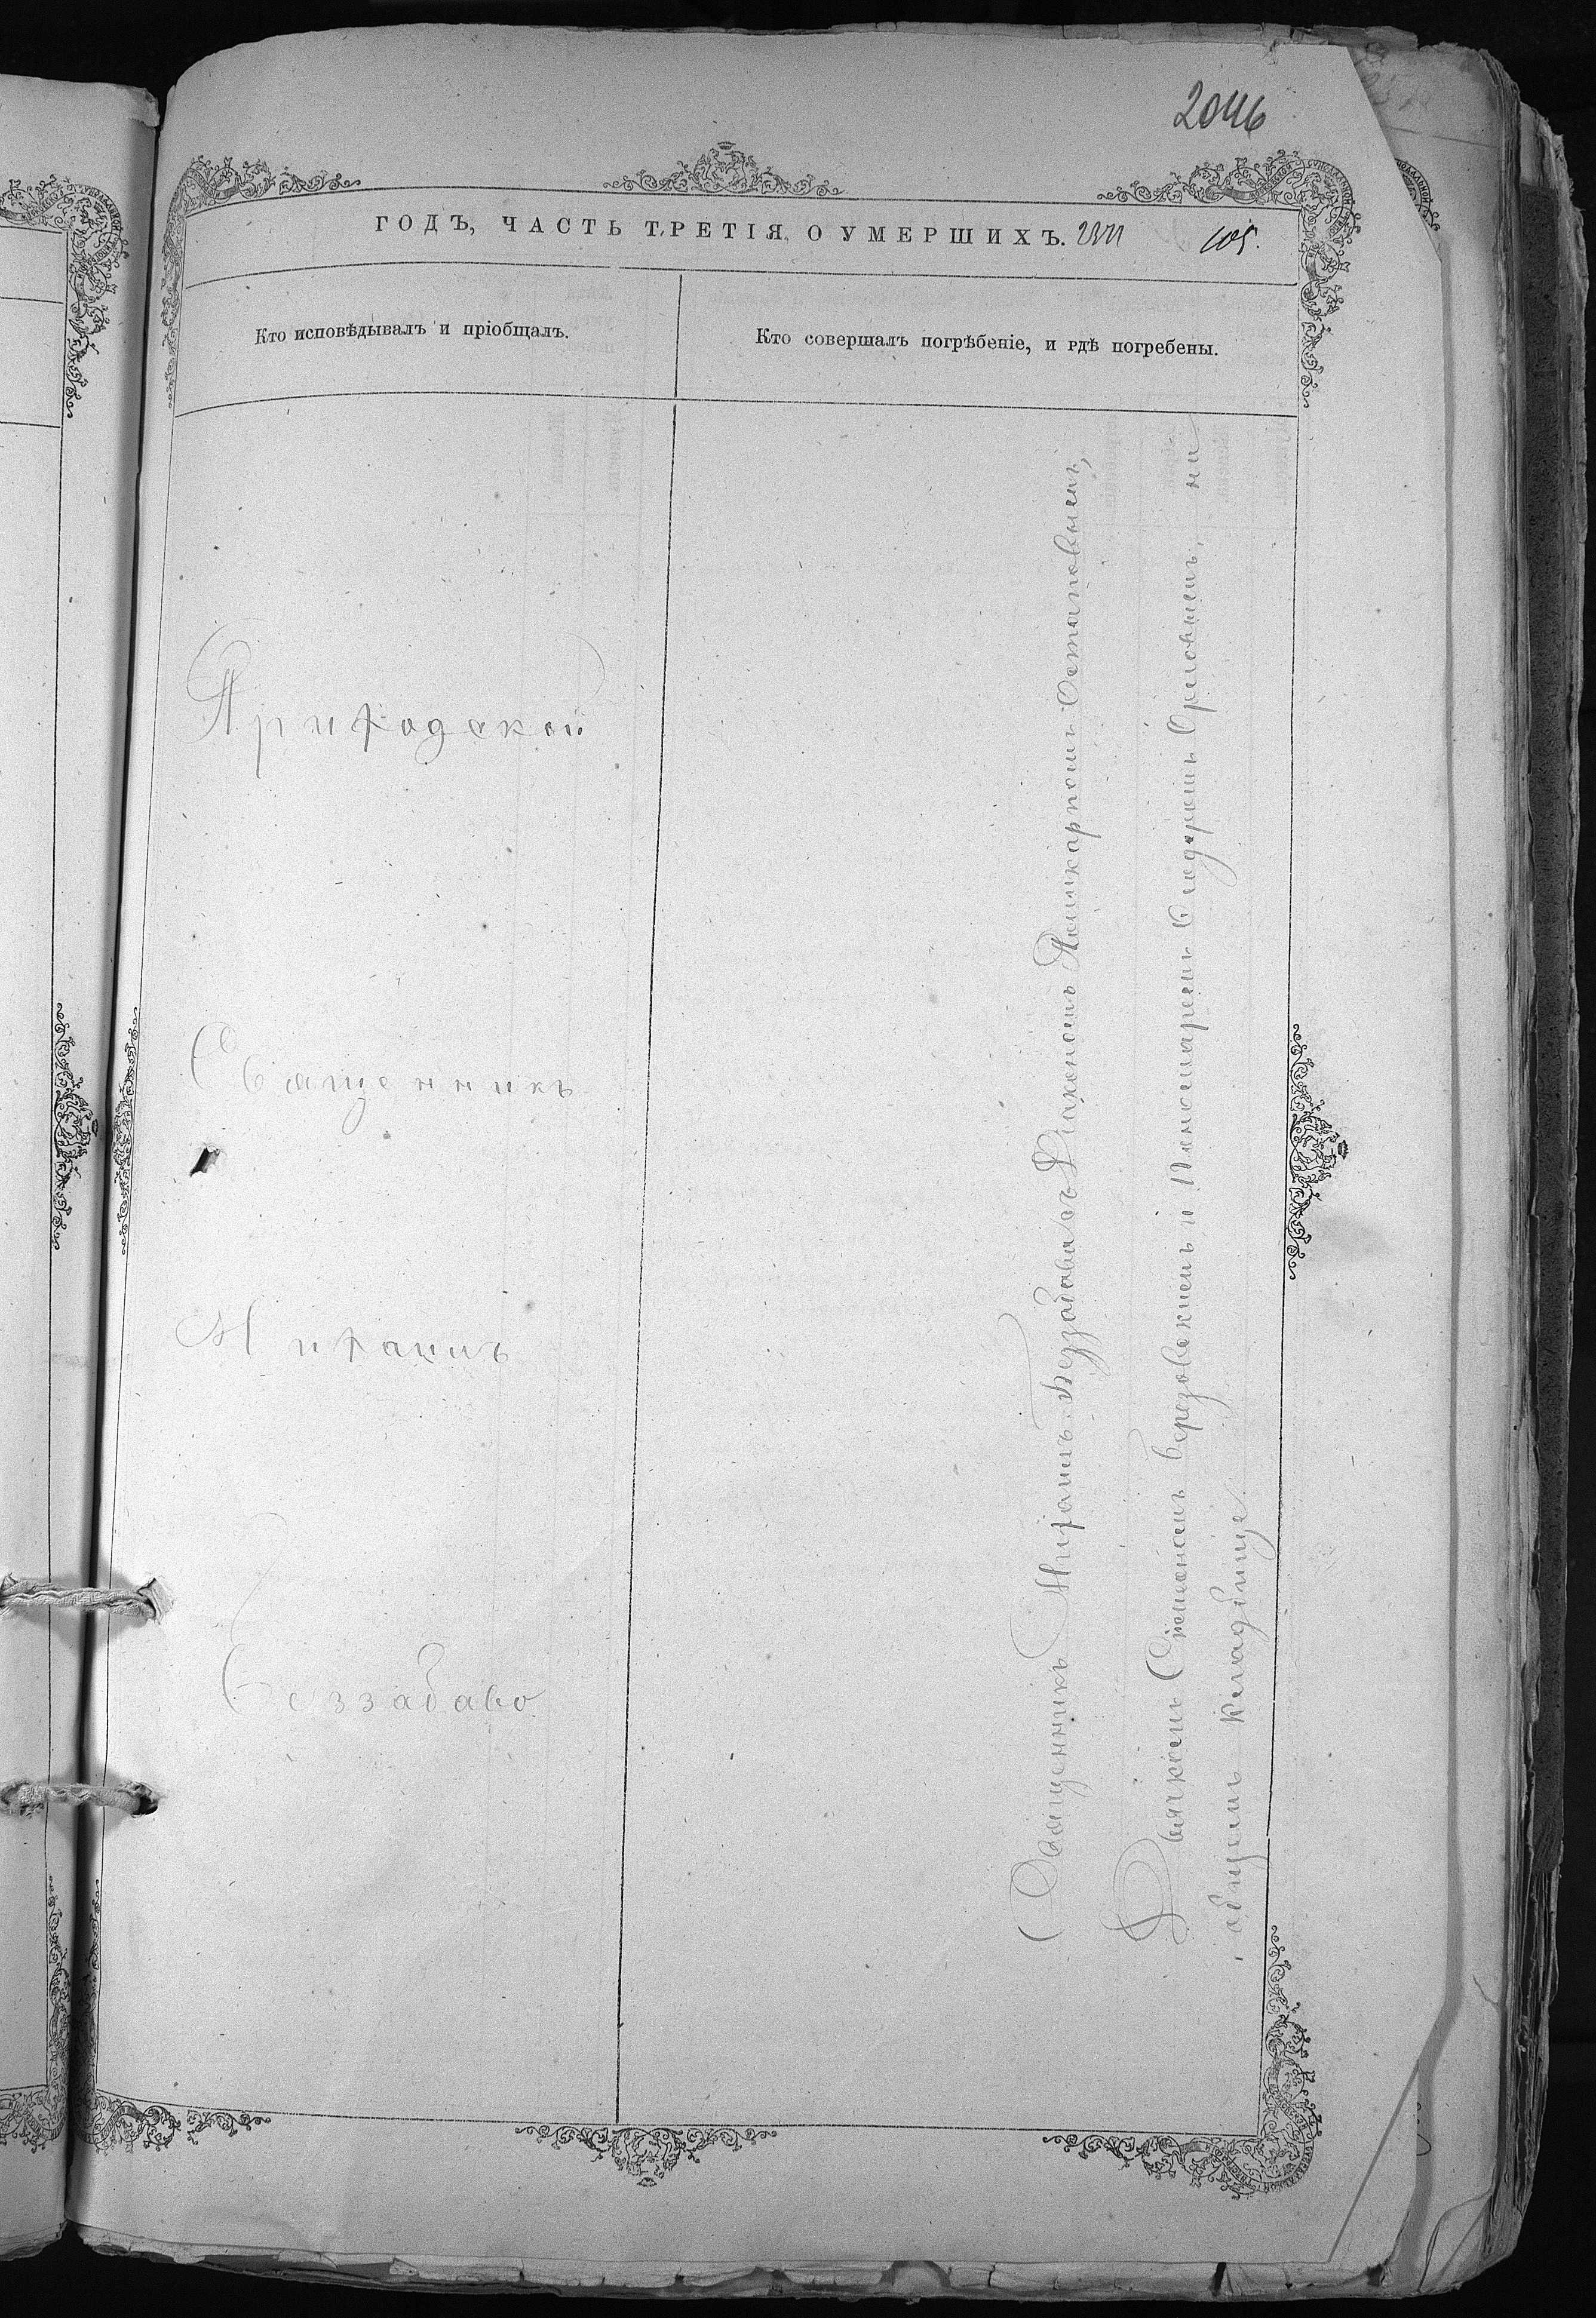 2046
ГОДЪ, ЧАСТЬ ТРЕТІЯ, О УМЕРШИХЪ.
105.
Кто исповѣдывалъ и пріобщалъ.
Кто совершалъ погрѣбеніе, и гдѣ погребены.
Приходской
Священникъ
Михаилъ
Беззабаво
Священникъ Михаилъ Беззабава съ Діакономъ Поликарпомъ Остаповымъ,
Дьячкомъ Симеономъ Березовскимъ и Пономаремъ Ѳеодоромъ Орловымъ, на
общемъ кладбище.